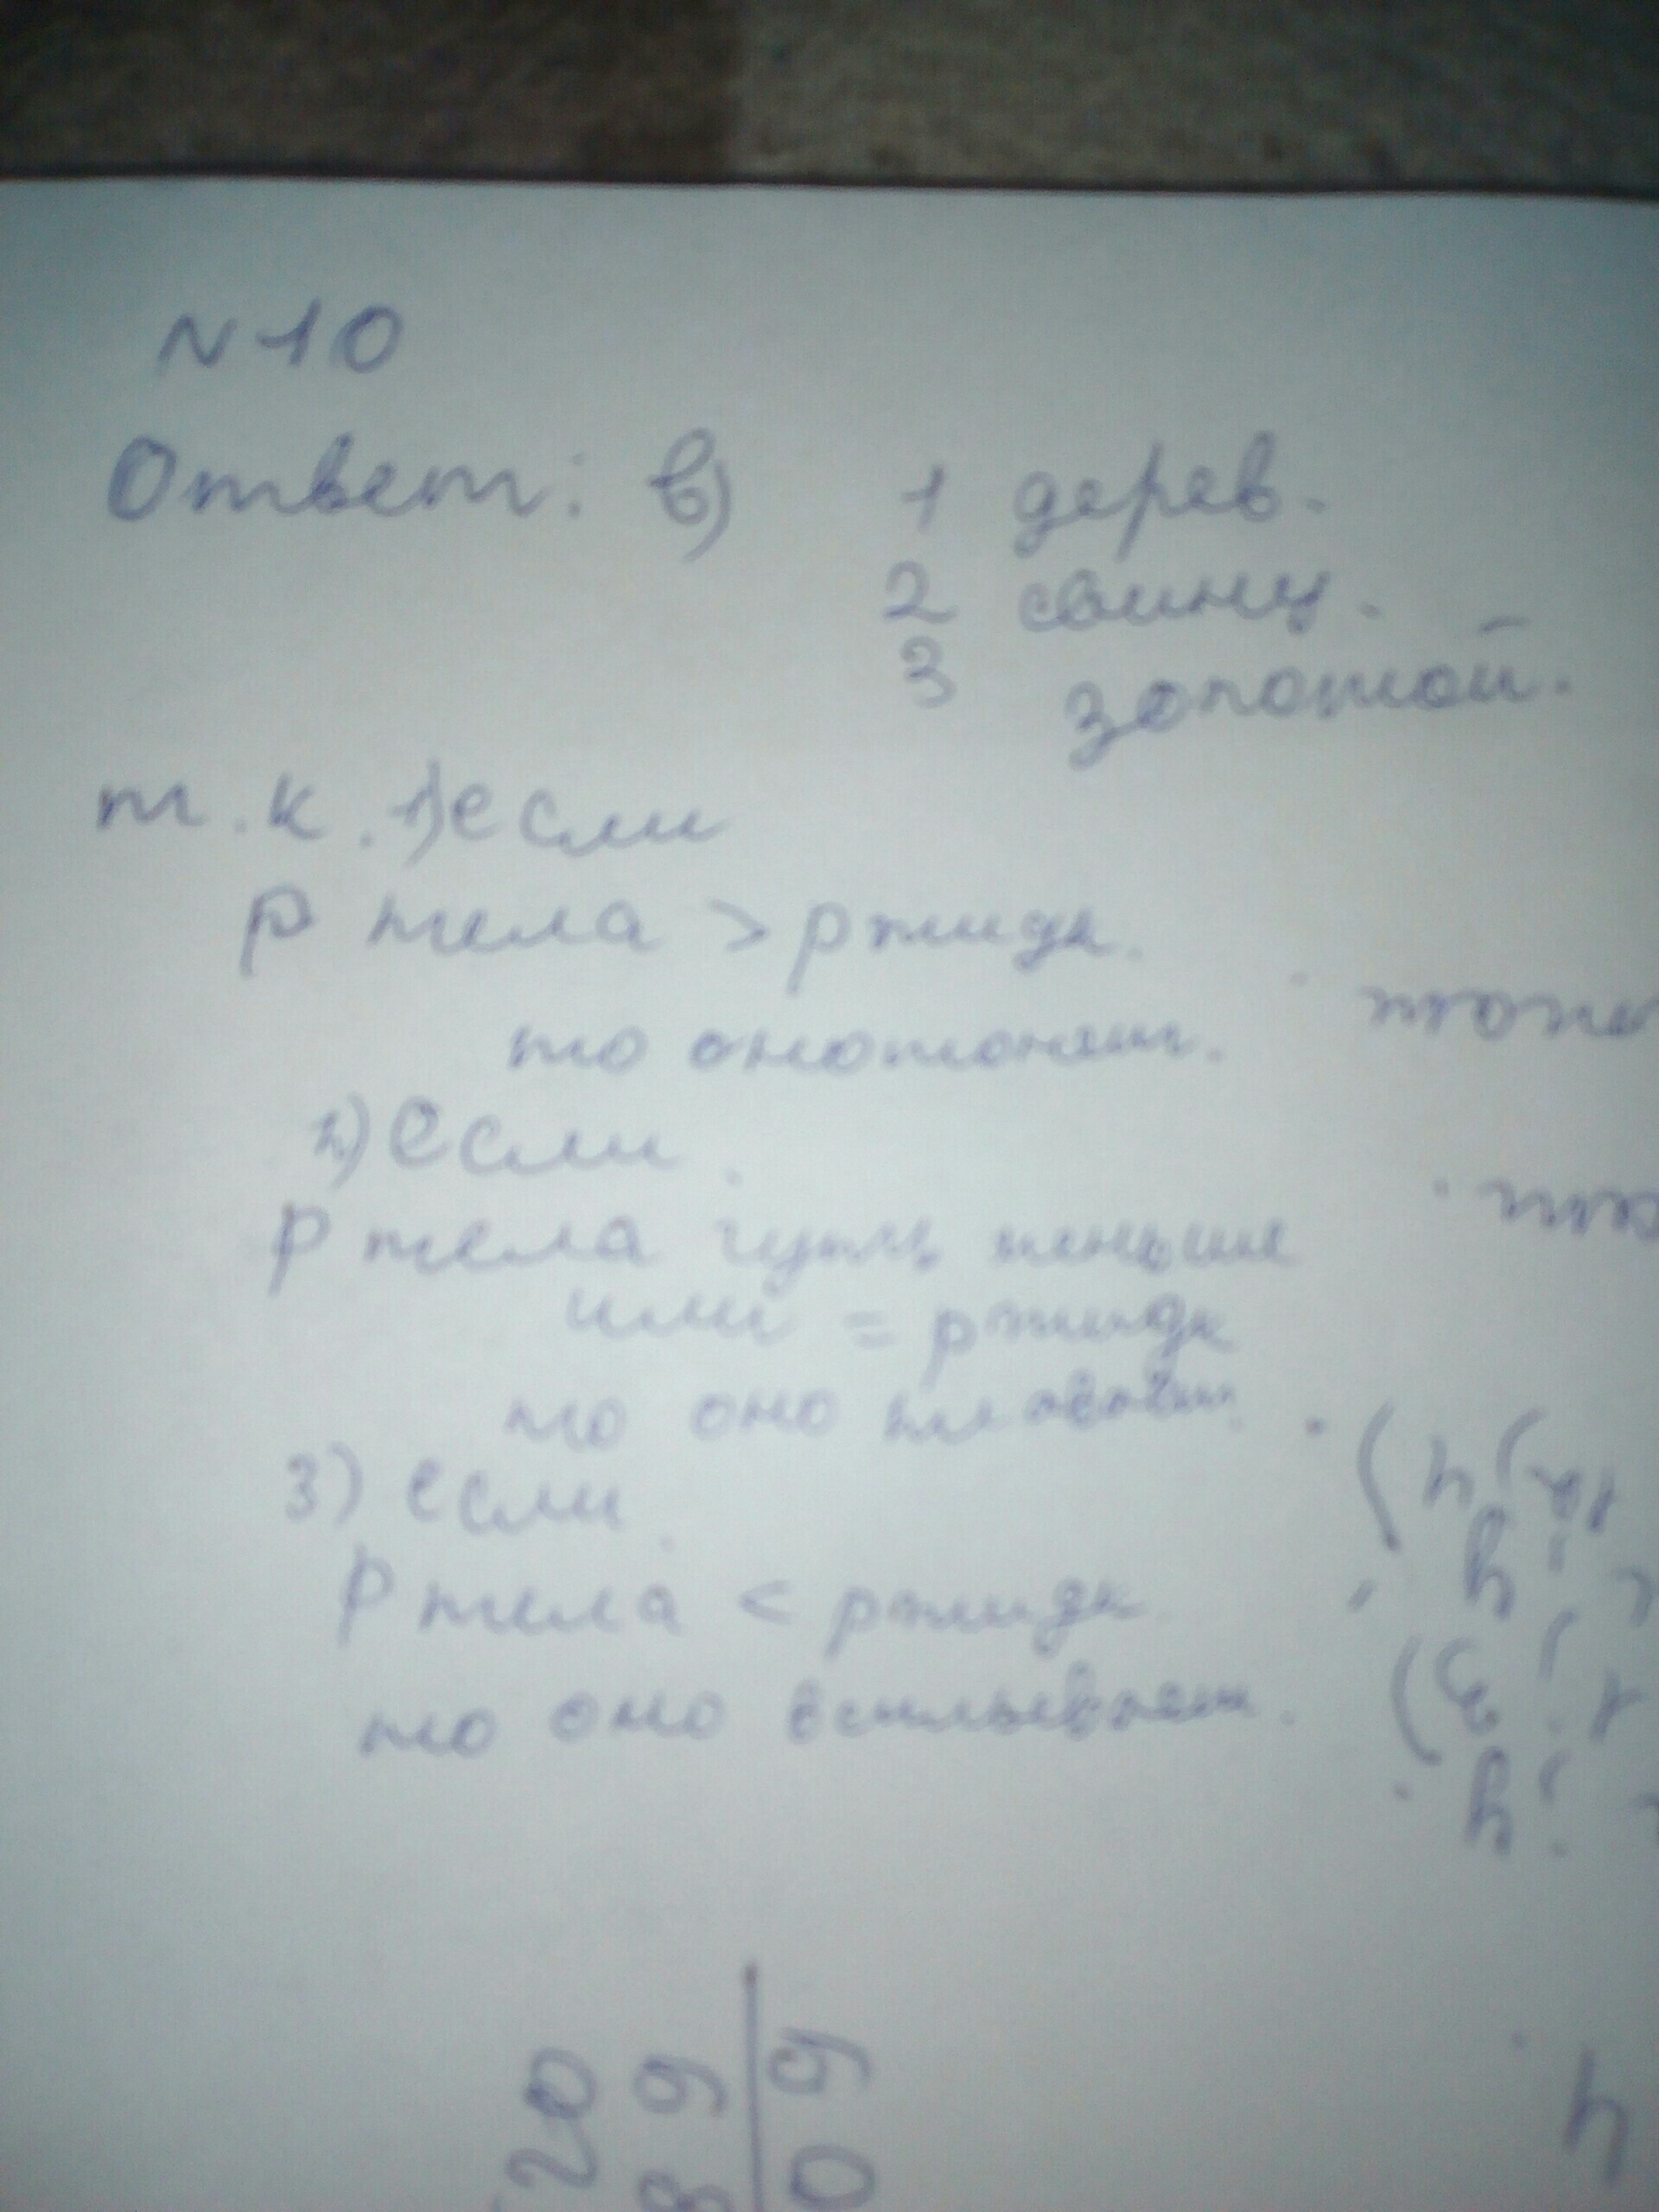 N 10
Ответ: в) 1 дерев.
2 свинц.
3 золотой.
т.к. 1) если
p тела > p жидк.
то оно тонет.
2) Если
p тела чуть меньше
или = p жидк
то оно плавает.
3) если
p тела < p жидк
то оно всплывает.
20
9
6
8
0
4